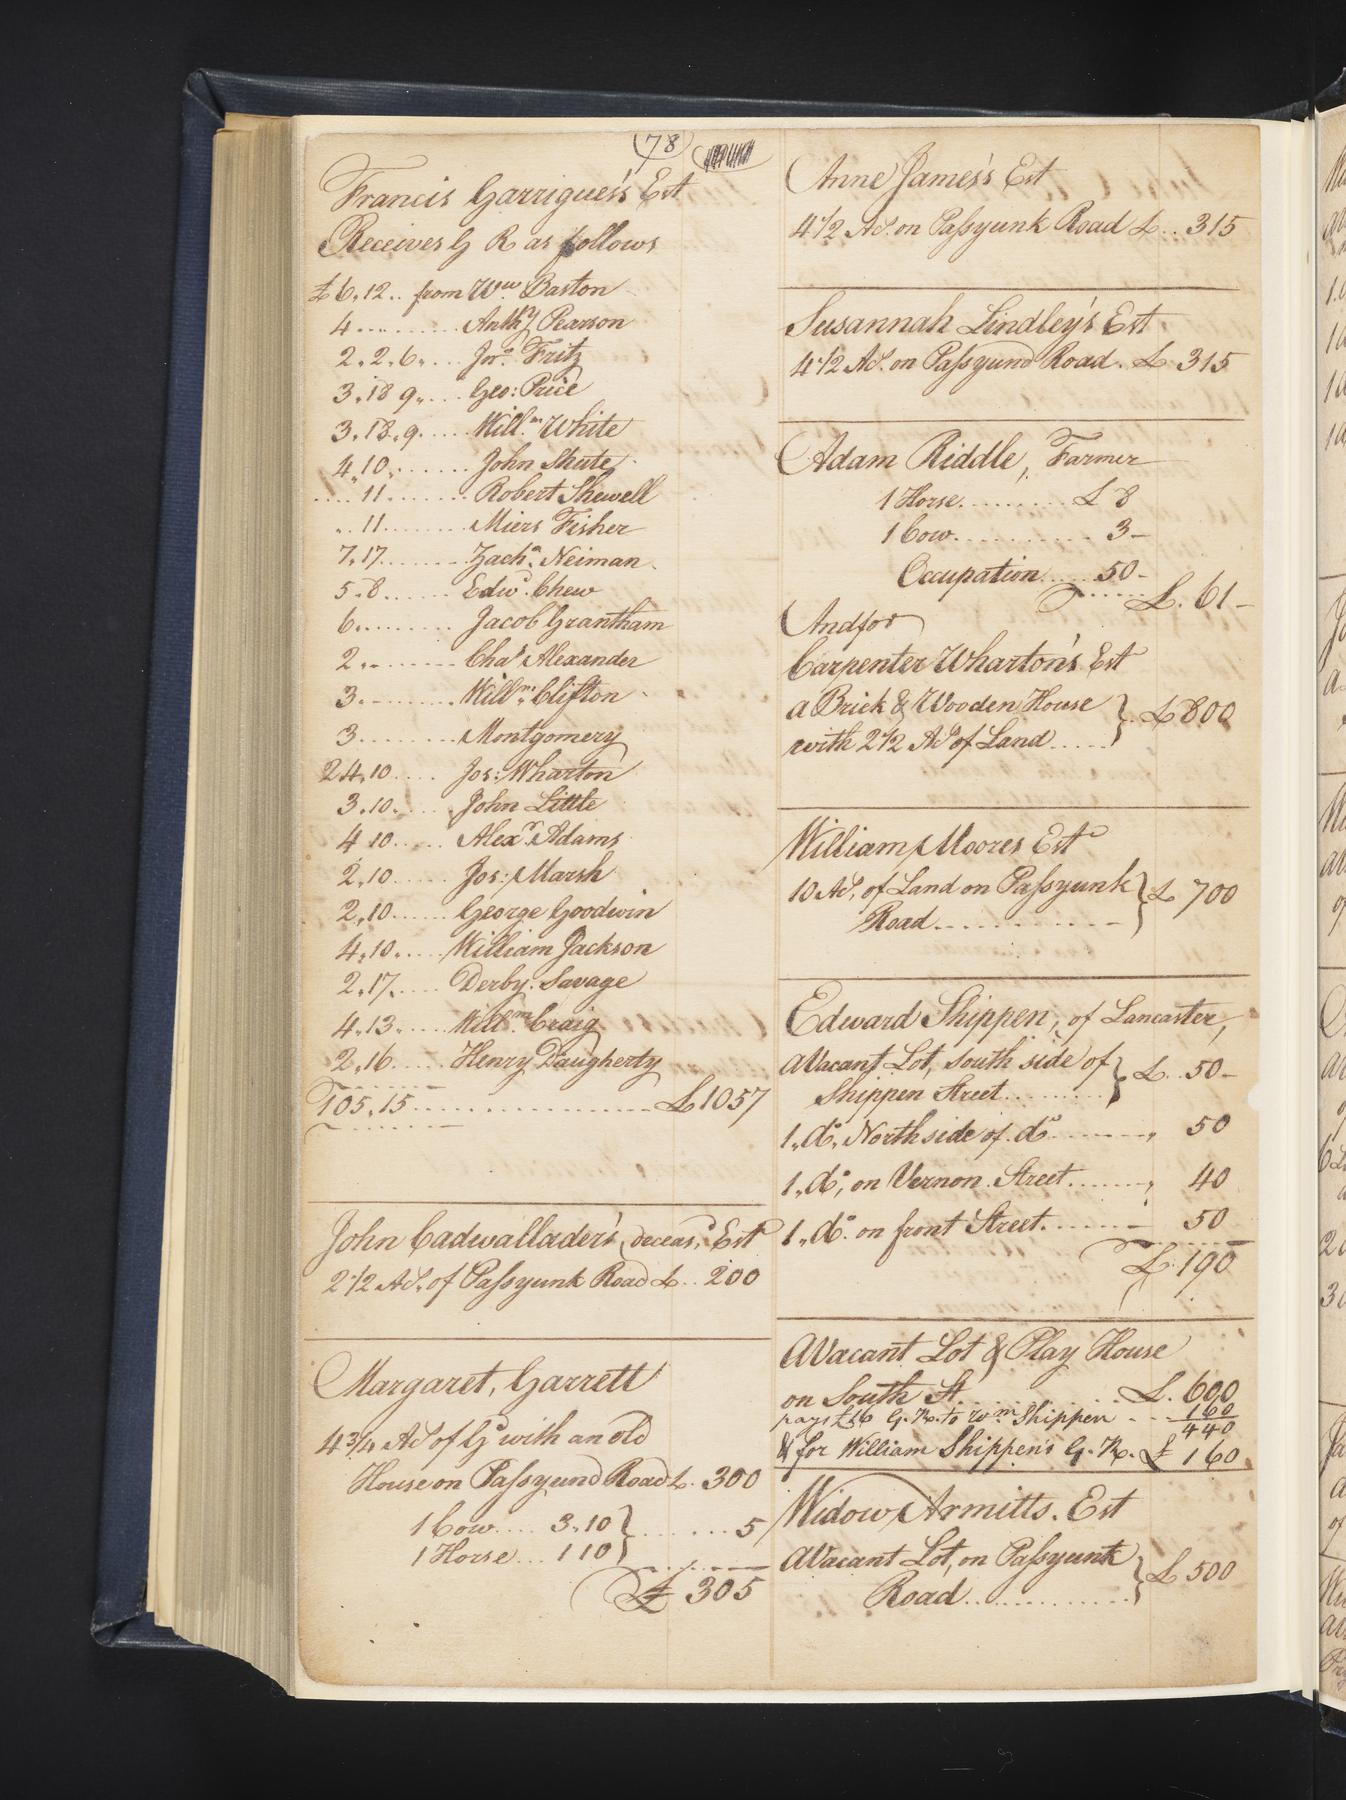 78
Francis Garrigues's Est
Receives G R as follows
£6.12.. from Wm Baston
4.......... Anthy Pearson
2.2.6..... Jno Fritz
3.18 9..... Geo: Price
3.18.9..... Willm White
4.10........ John Shute
.... 11....... Robert Shewell
.. 11........ Miers Fisher
7.17........ Zacha. Neiman
5.8....... Edwd. Chew
6.......... Jacob Grantham
2.......... Chas Alexander
3.......... Willm. Clifton
3.......... Montgomery
24.10..... Jos: Wharton
3.10...... John Little
4 10...... Alexr. Adams
2.10...... Jos: Marsh
2.10....... George Goodwin
4.10...... William Jackson
2.17...... Derby Savage
4.13...... Willm. Craig
2.16...... Henry Daugherty
105.15...................... £1057
John Cadwallader's, deceasd. Est
2 1/2 As. of Passyunk Road £.. 200
Margaret, Garrett
4 3/4 As of Gd with an old
House on Passyund Road £. 300
1 Cow.... 3.10 } ....... 5
1 Horse... 1 10
£ 305
Anne James's Est
4 1/2 As. on Passyunk Road £.. 315
Susannah Lindley's Est
4 1/2 As. on Passyund Road. £ 315
Adam Riddle, Farmer
1 Horse........... £ 8
1 Cow............ 3-
Occupation..... 50-
£. 61-
And for
Carpenter Wharton's Est
a Brick & Wooden House } £800
with 2 1/2 As of Land.....
William Moores Est
10 As. of Land on Passyunk } £ 700
Road............
Edward Shippen, of Lancaster,
A Vacant Lot, South side of } £.. 50-
Shippen Street..........
1. do. North side of do.......... 50
1. do, on Vernon Street........, 40
1. do. on front Street........ 50
£.190
A Vacant Lot & Play House
on South St............ £. 600
pays £16 G. R. to Wm Shippen - - - 160
440
& for William Shippen's G. R. £ 160
Widow Armitts. Est
A Vacant Lot, on Passyunk } £ 500
Road..............